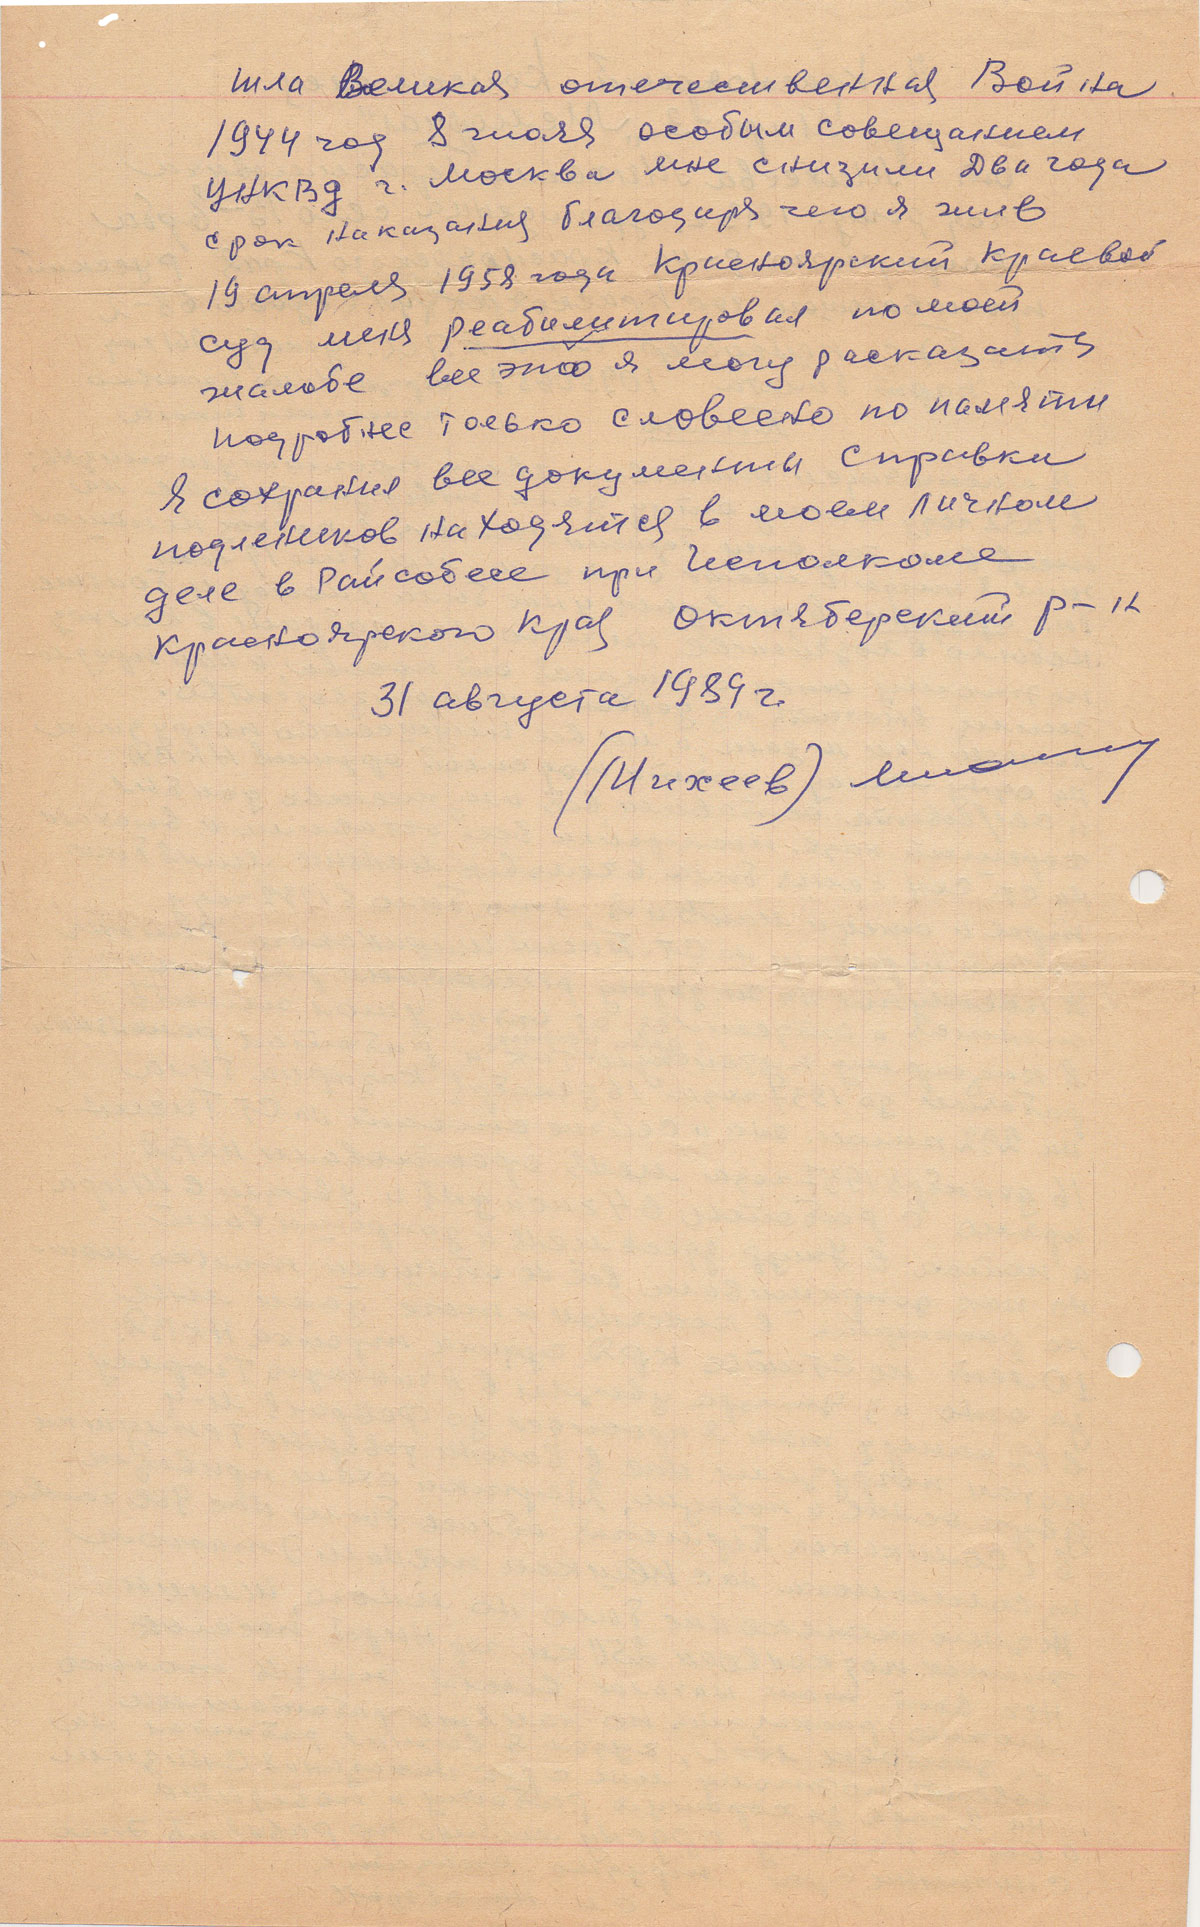 шла Великая отечественная Война
1944 год 8 июля особым совещанием
УНКВД г. Москва мне снизили Два года
срок наказания благодаря чего я жив
19 апреля 1958 года Красноярский Краевой
суд меня реабилитировал по моей
жалобе все это я могу расказать
подробнее только словесно по памяти
Я сохранил все документы справки
подлеников находятся в моем личном
деле в Райсобесе при Исполкоме
Красноярского Края Октяберский р-н
31 августа 1989 г.
(Михеев)